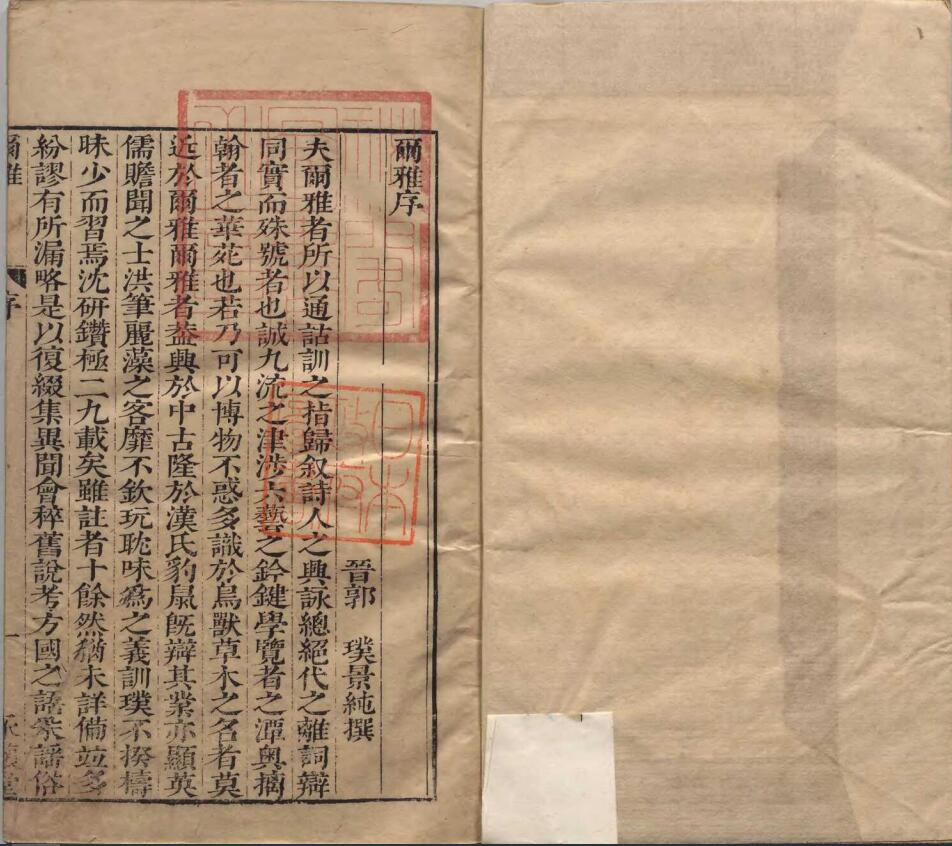 爾雅序
晉郭 璞景純撰
夫爾雅者所以通詁訓之指歸叙詩人之興詠總絕代之離詞辯
同實而殊號者也誠九流之津涉六藝之鈐鍵學覽者之潭奧摛
翰者之華苑也若乃可以博物不惑多識於鳥獸草木之名者莫
近於爾雅爾雅者葢興於中古隆於漢氏豹鼠旣辯其業亦顯英
儒贍聞之士洪筆麗藻之客靡不欽玩耽味爲之義訓璞不揆檮
昧少而習焉沈研鑽極二九載矣雖註者十餘然猶未詳備竝多
紛謬有所漏略是以復綴集異聞會稡舊說考方國之語采謠俗
爾雅 序 一 永懷堂